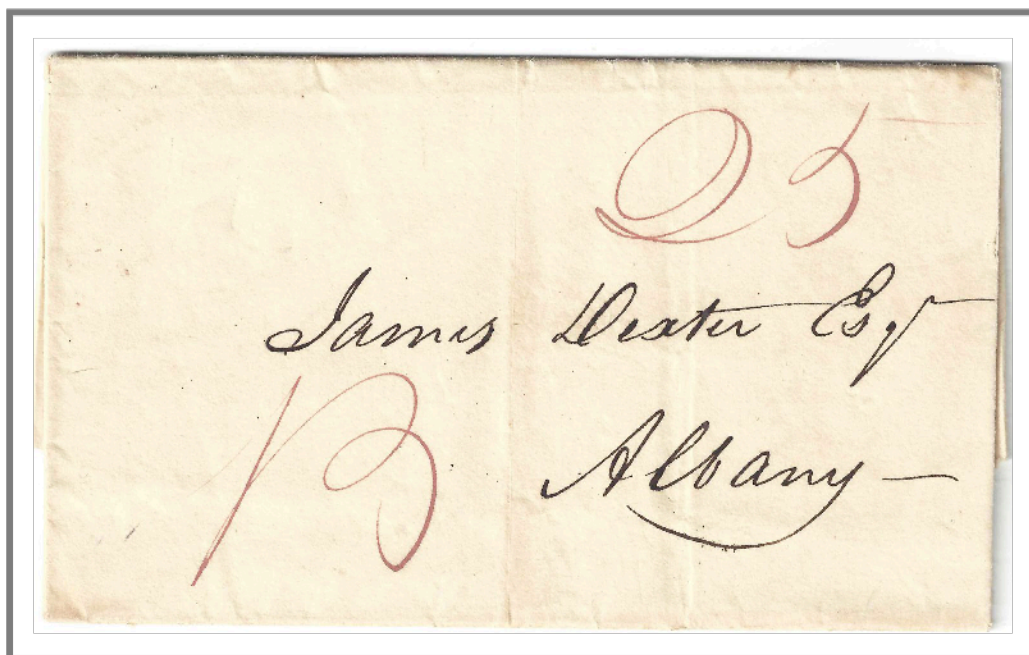 25
James Dexter Esqr
B
Albany